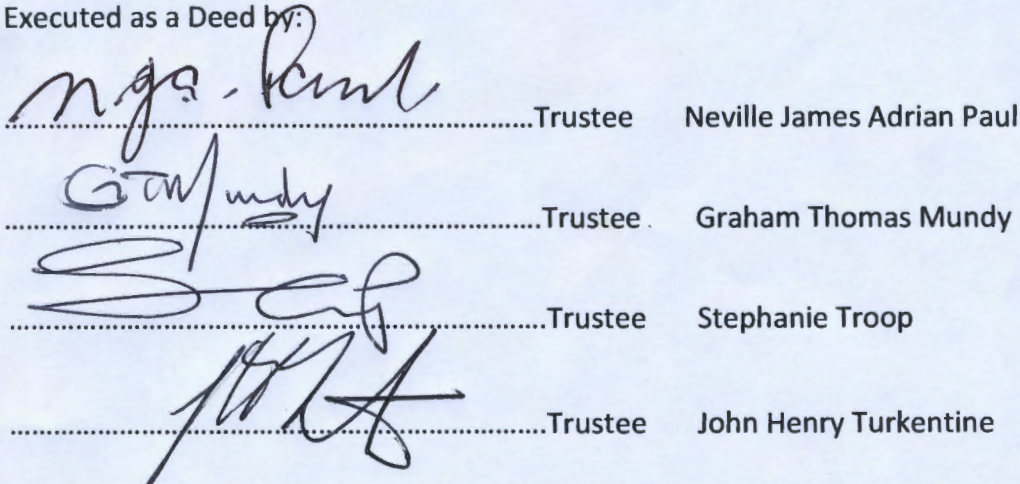 Executed as a Deed by:
................................................Trustee Neville James Adrian Paul
................................................Trustee Graham Thomas Mundy
GTMundy
................................................Trustee Stephanie Troop
................................................Trustee John Henry Turkentine